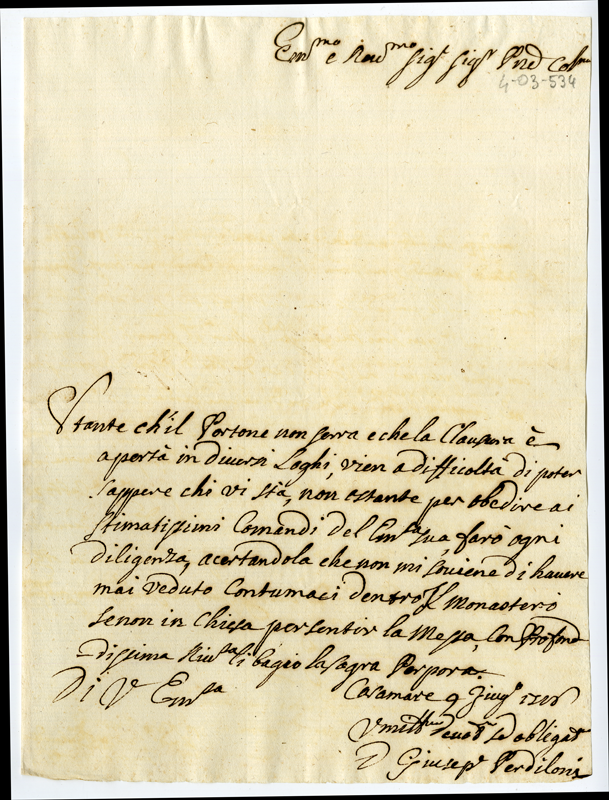 Em.mo e Reu.mo Sig.r Sig.r Pred Col.mo
4-03-534
Stante ch'il Portone non serra e che la Clausura è
aperta in diversi loghi, vien a difficoltà di poter
sappere chi vi stà, non ostante per obedire ai
stimatissimi Comandi del Em.sa sua, farò ogni
diligenza, acertandola che non mi soviene di havere
mai veduto Contumaci dentro il Monasterio
senon in Chiesa per sentir la Messa, Con Profon
dissima Riu.sa li bagio la sagra Porpora.
Di V Em.sa
Casamare 9 Giug.o
Vmill.mo deuo.mo ed obligat.o
D Giusep.e Perdiloni